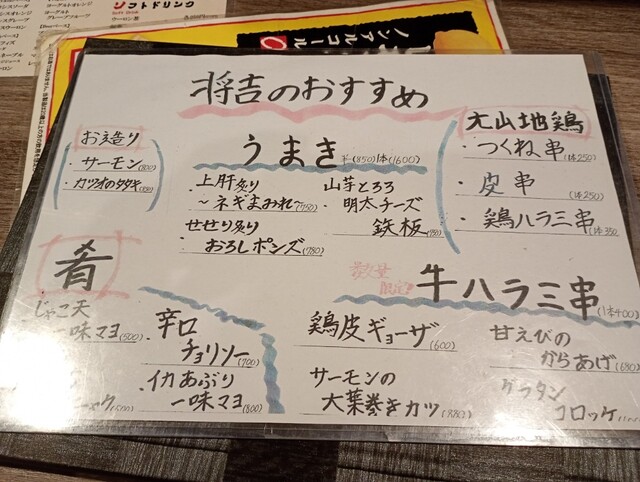 ソフトドリンク
ノンアルコール
将吉のおすすめ
お造り
・サーモン(800)
・カツオのタタキ
うまき 半(850)1本(1600)
・上肝炙り
〜ネギまみれ〜(750)
せせり炙り
・おろしポンズ(780)
山芋とろろ
・明太チーズ
鉄板
大山地鶏
・つくね串(1本250)
・皮串(1本250)
・鶏ハラミ串(1本350
肴
じゃこ天
一味マヨ(500)
辛口
・チョリソー(700)
・イカあぶり
一味マヨ(800)
数量
限定!
牛ハラミ串(1本400)
・鶏皮ギョーザ(600)
サーモンの
・大葉巻きカツ(880)
甘えびの
・からあげ(680)
グラタン
・コロッケ